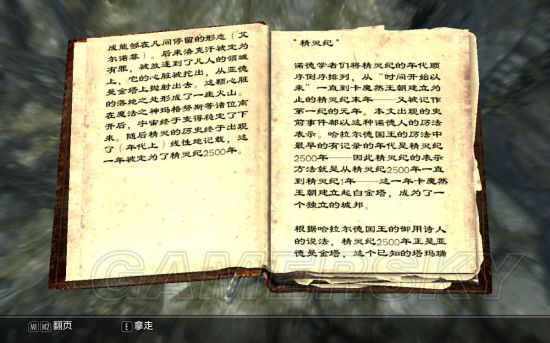 成能够在凡间停留的形态(艾
尔诺菲)。后来洛克汗被定为
有罪,被放逐到了凡人的领域
上,它的心脏被挖出,从亚德
曼金塔上抛射出去。这颗心脏
的落地之处形成了一座火山。
在魔法之神玛格努斯等诸位离
开后,宇宙终于变得稳定了下
来。随后精灵的历史终于出现
了(年代上)线性地记载,这
一年被定为了精灵纪2500年。
"精灵纪"
诺德学者们将精灵纪的年代顺
序倒序排列,从"时间开始以
来"一直到卡魔然王朝建立为
止的精灵纪末年——又被记作
第一纪的元年。本文出现的史
前事件都以这种诺德人的历法
表示。哈拉尔德国王的历法中
最早的有记录的年代是精灵纪
2500年——因此精灵纪的表示
方法就是从精灵纪2500年一直
到精灵纪1年——这一年卡魔然
王朝建立起白金塔,成为了一
个独立的城邦。
根据哈拉尔德国王的御用诗人
的说法,精灵纪2500年正是亚
德曼金塔,这个已知的塔玛瑞
GAMERSKY
M1 M2 翻页
E 拿走